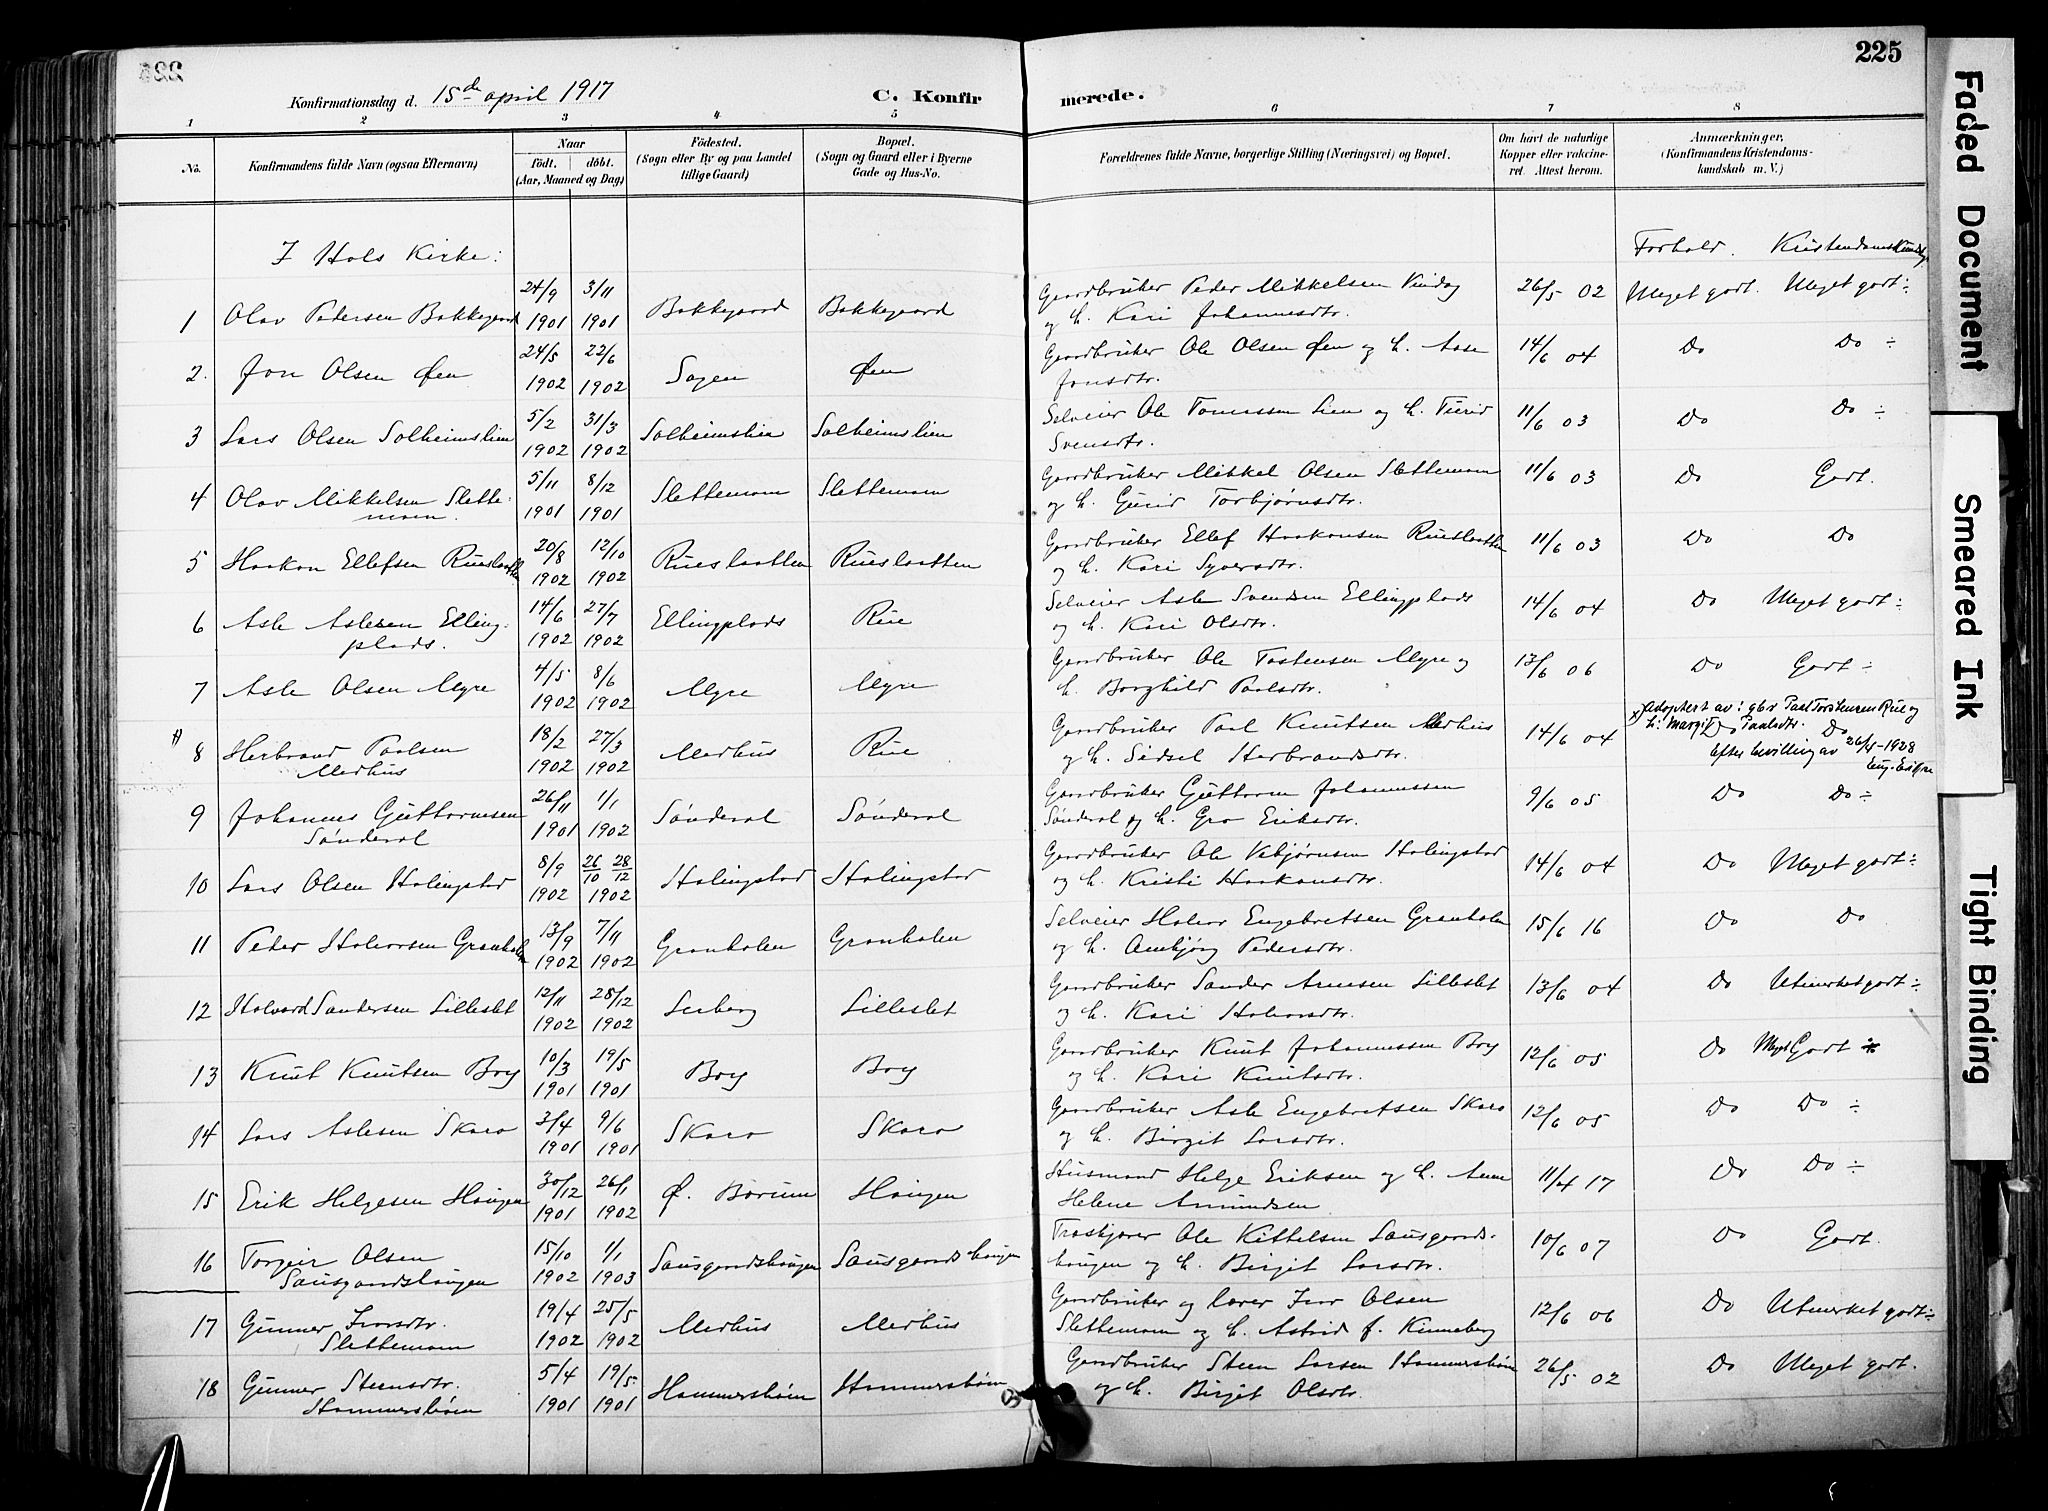 225
Konfirmationsdag d. 15de april 1917
C. Konfirmerede.
1 2 3 4 5 6 7 8
No.
Konfirmandens fulde Navn (ogsaa Efternavn)
Naar
födt. döbt.
(Aar, Maaned og Dag)
Födested.
(Sogn eller By og paa Landet
tillige Gaard)
Bopæl.
(Sogn og Gaard eller i Byerne
Gade og Hus-No.
Forældrenes fulde Navne, borgerlige Stilling (Næringsvei) og Bopæl.
Om havt de naturlige
Kopper eller vakcine-
ret. Attest herom.
Anmærkninger.
(Konfirmandens Kristendoms-
kundskab m. V.)
I Hols Kirke:
Forhold. Kristendomskundsk
1 Olav Pedersen Bakkegaard 24/9 1901 3/11 1901 Bakkegaard Bakkegaard Gaardbruker Peder Mikkelsen
og h. Kari Johannesdtr. 26/5 02 Meget godt. Meget godt ÷
2. Jon Olsen Øen 24/5 1902 22/6 1902 Øen Gaardbruker Ole Olsen Øen og h. Aase
Jonsdtr. 14/6 04 Do Do ÷
3 Lars Olsen Solheimslien 5/2 1902 31/3 1902 Solheimslien Solheimslien Selveier Ole Tomassen Lien og h. Turid
Svensdtr. 11/6 03 Do Do ÷
4 Olav Mikkelsen Slette-
moen. 5/11 1901 8/12 1901 Slettemoen Slettemoen Gaardbruker Mikkel Olsen Slettemoen
og h. Guri Torbjørnsdtr. 11/6 03 Do Godt.
5 Haakon Ellefsen Rueslaatten 20/8 1902 12/10 1902 Rueslaatten Rueslaatten Gaardbruker Ellef Haakonsen Rueslaatten
og h. Kari Syversdtr. 11/6 03 Do Do
6 Asle Aslesen Elling-
plads. 14/6 1902 27/7 1902 Ellingplads Rue Selveier Asle Svendsen Ellingplads
og h. Kari Olsdtr. 14/6 04 Do Meget godt ÷
7 Asle Olsen Myre 4/5 1902 8/6 1902 Myre Myre Gaardbruker Ole Tostensen Myre og
h. Borghild Paalsdtr. 13/6 06 Do Godt ÷
8 Herbrand Paalsen
Medhus 18/2 1902 27/3 1902 Medhus Rue Gaardbruker Paal Knutsen Medhus
og h. Sidsel Herbrandsdtr. 14/6 04 Do Do
Adoptert av: gbr Paal Torstensen Rue og
h: Margit Paalsdtr.
Efter bevilling av 26/4-1928
9 Johannes Guttormsen
Sønderal 26/11 1901 1/1 1902 Sønderal Sønderal Gaardbruker Guttorm Johannessen
Sønderal og h. Gro Eriksdtr. 9/6 05 Do Do ÷
10 Lars Olsen Holingstad 8/9 1902 26/10 28/12 1902 Holingstad Holingstad Gaardbruker Ole Vebjørnsen Holingstad
og h. Kristi Haakonsdtr. 14/6 04 Do Meget godt ÷
11 Peder Halvorsen Granholen 13/9 1902 7/11 1902 Granholen Granholen Selveier Halvor Engebretsen Granholen
og h. Ambjørg Pedersdtr. 15/6 16 Do Do
12 Halvard Sandersen Lilleslet 12/11 1902 28/12 1902 Seeberg Lilleslet Gaardbruker Sander Arnesen Lilleslet
og h. Kari Halvorsdtr. 13/6 04 Do Utmerket godt ÷
13 Knut Knutsen Bry 10/3 1901 19/5 1901 Bry Bry Gaardbruker Knut Johannessen Bry
og h. Kari Knutsdtr. 12/6 05 Do Meget Godt
14 Lars Aslesen Skaro 3/4 1901 9/6 1901 Skaro Skaro Gaardbruker Asle Engebretsen Skaro
og h. Birgit Larsdtr. 12/6 05 Do Do ÷
15 Erik Helgesen Haugen 30/12 1901 26/1 1902 Ø. Bærum Haugen Husmand Helge Eriksen og h. Anne
Helene Amundsen 11/4 17 Do Do ÷
16 Torgeir Olsen
Sausgaardshaugen 15/10 1902 1/1 1903 Sausgaardshaugen Sausgaardshaugen Træskjærer Ole Kittelsen Sausgaards-
haugen og h. Birgit Larsdtr. 10/6 07 Do Godt.
17 Gunner Ivarsdtr.
Slettemoen 19/4 1902 25/5 1902 Medhus Medhus Gaardbruker og lærer Ivar Olsen
Slettemoen og h. Astrid f. Kinneberg 12/6 06 Do Utmerket godt ÷
18 Gunner Steensdtr.
Hammersbøen 5/4 1901 19/5 1901 Hammersbøen Hammersbøen Gaardbruker Steen Larsen Hammersbøen
og h. Birgit Olsdtr. 26/5 02 Do Meget godt.
Faded Document
Smeared Ink
Tight Binding